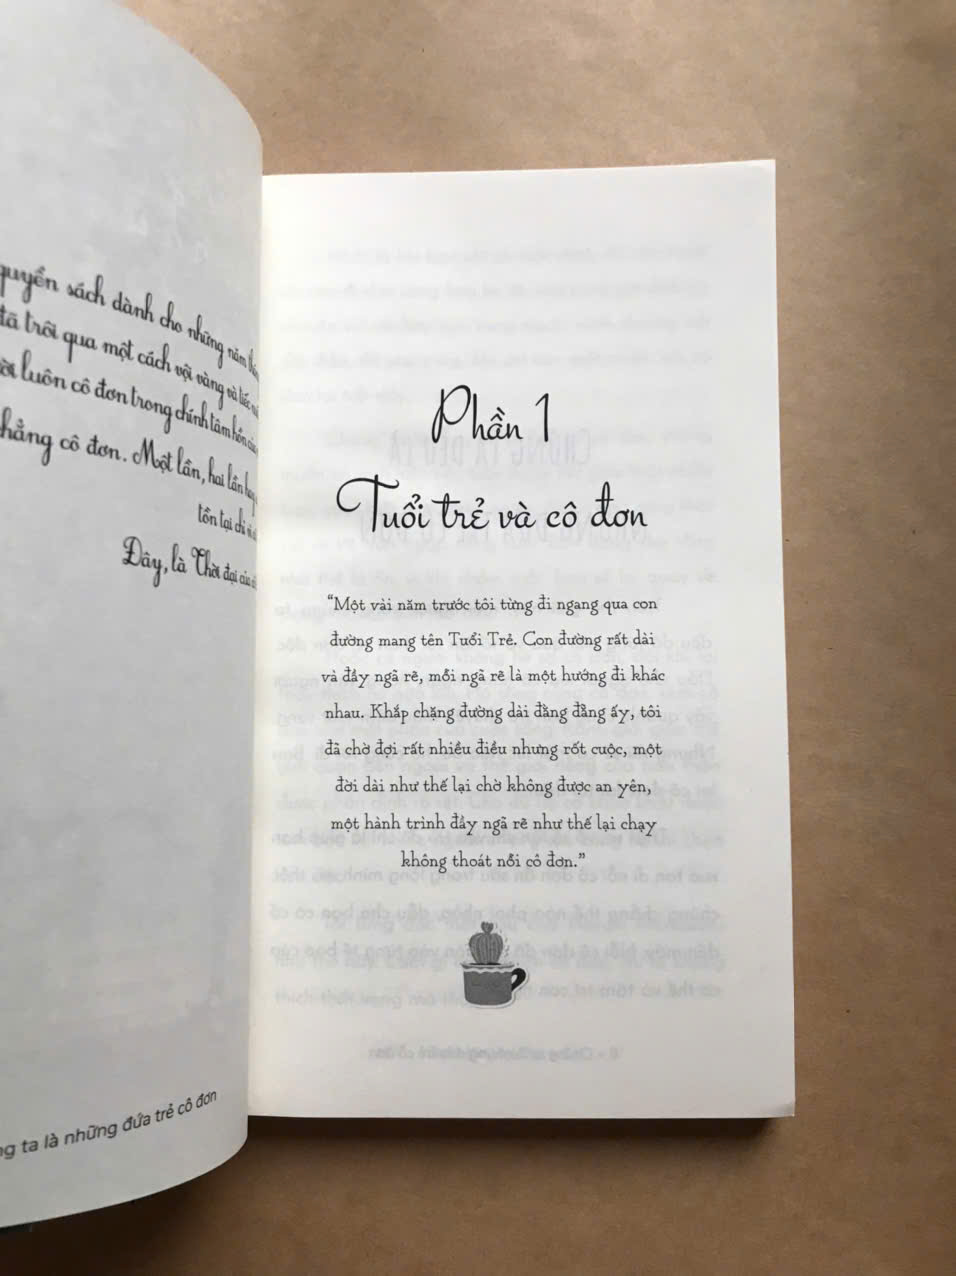 quyển sách dành cho những năm
đã trôi qua một cách vội vàng và tiếc
luôn cô đơn trong chính tâm hồn
chẳng cô đơn. Một lần, hai lần hay
tồn tại chỉ
Đây, là Thời đại của
ta là những đứa trẻ cô đơn
Phần 1
Tuổi trẻ và cô đơn
“Một vài năm trước tôi từng đi ngang qua con
đường mang tên Tuổi Trẻ. Con đường rất dài
và đầy ngã rẽ, mỗi ngã rẽ là một hướng đi khác
nhau. Khắp chặng đường dài đằng đẵng ấy, tôi
đã chờ đợi rất nhiều điều nhưng rốt cuộc, một
đời dài như thế lại chờ không được an yên,
một hành trình đầy ngã rẽ như thế lại chạy
không thoát nổi cô đơn.”